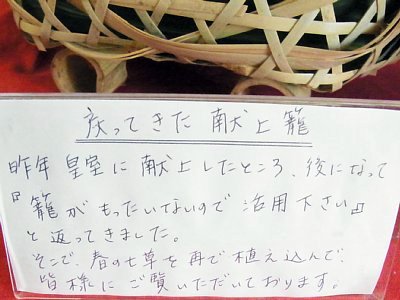 戻ってきた献上籠
昨年皇室に献上したところ、後になって
『籠がもったいないので活用下さい』
と返ってきました。
そこで、春の七草を再で植え込んで、
皆様にご覧いただいております。